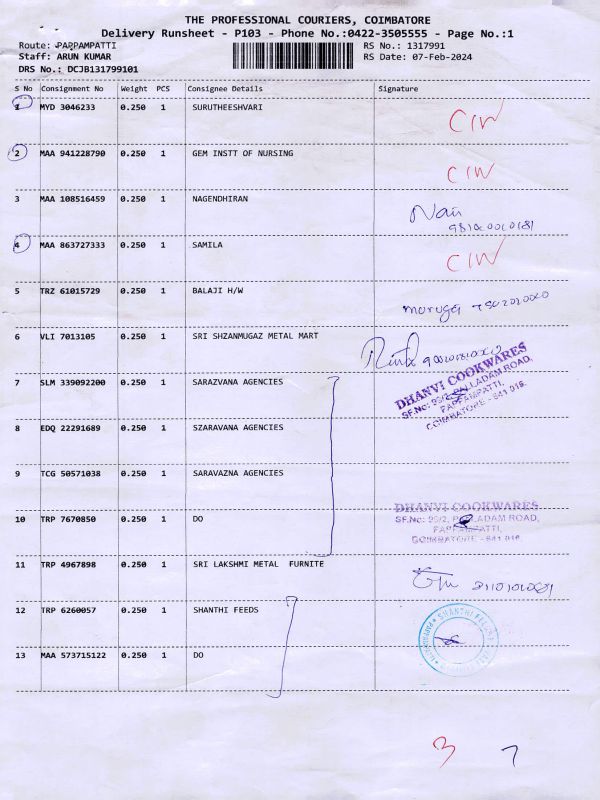 THE PROFESSIONAL COURIERS, COIMBATORE
Delivery Runsheet - P103 - Phone No.:0422-3505555 - Page No.:1
Route: PAPPAMPATTI RS No.: 1317991
Staff: ARUN KUMAR RS Date: 07-Feb-2024
DRS No.: DCJB131799101
S No Consignment No Weight PCS Consignee Details Signature
1 MYD 3046233 0.250 1 SURUTHEESHVARI
CIW
2 MAA 941228790 0.250 1 GEM INSTT OF NURSING
CIW
3 MAA 108516459 0.250 1 NAGENDHIRAN
4 MAA 863727333 0.250 1 SAMILA
CIW
5 TRZ 61015729 0.250 1 BALAJI H/W
6 VLI 7013105 0.250 1 SRI SHZANMUGAZ METAL MART
7 SLM 339092200 0.250 1 SARAZVANA AGENCIES
DHANVI COOKWARES
SF.No: 99/2, PALLADAM ROAD,
PAPPAMPATTI,
COIMBATORE - 641 016.
8 EDQ 22291689 0.250 1 SZARAVANA AGENCIES
9 TCG 50571038 0.250 1 SARAVAZNA AGENCIES
10 TRP 7670850 0.250 1 DO
DHANVI COOKWARES
SF.No: 99/2, PALLADAM ROAD,
PAPPAMPATTI,
COIMBATORE - 641 016.
11 TRP 4967898 0.250 1 SRI LAKSHMI METAL FURNITE
12 TRP 6260057 0.250 1 SHANTHI FEEDS
13 MAA 573715122 0.250 1 DO
3 7